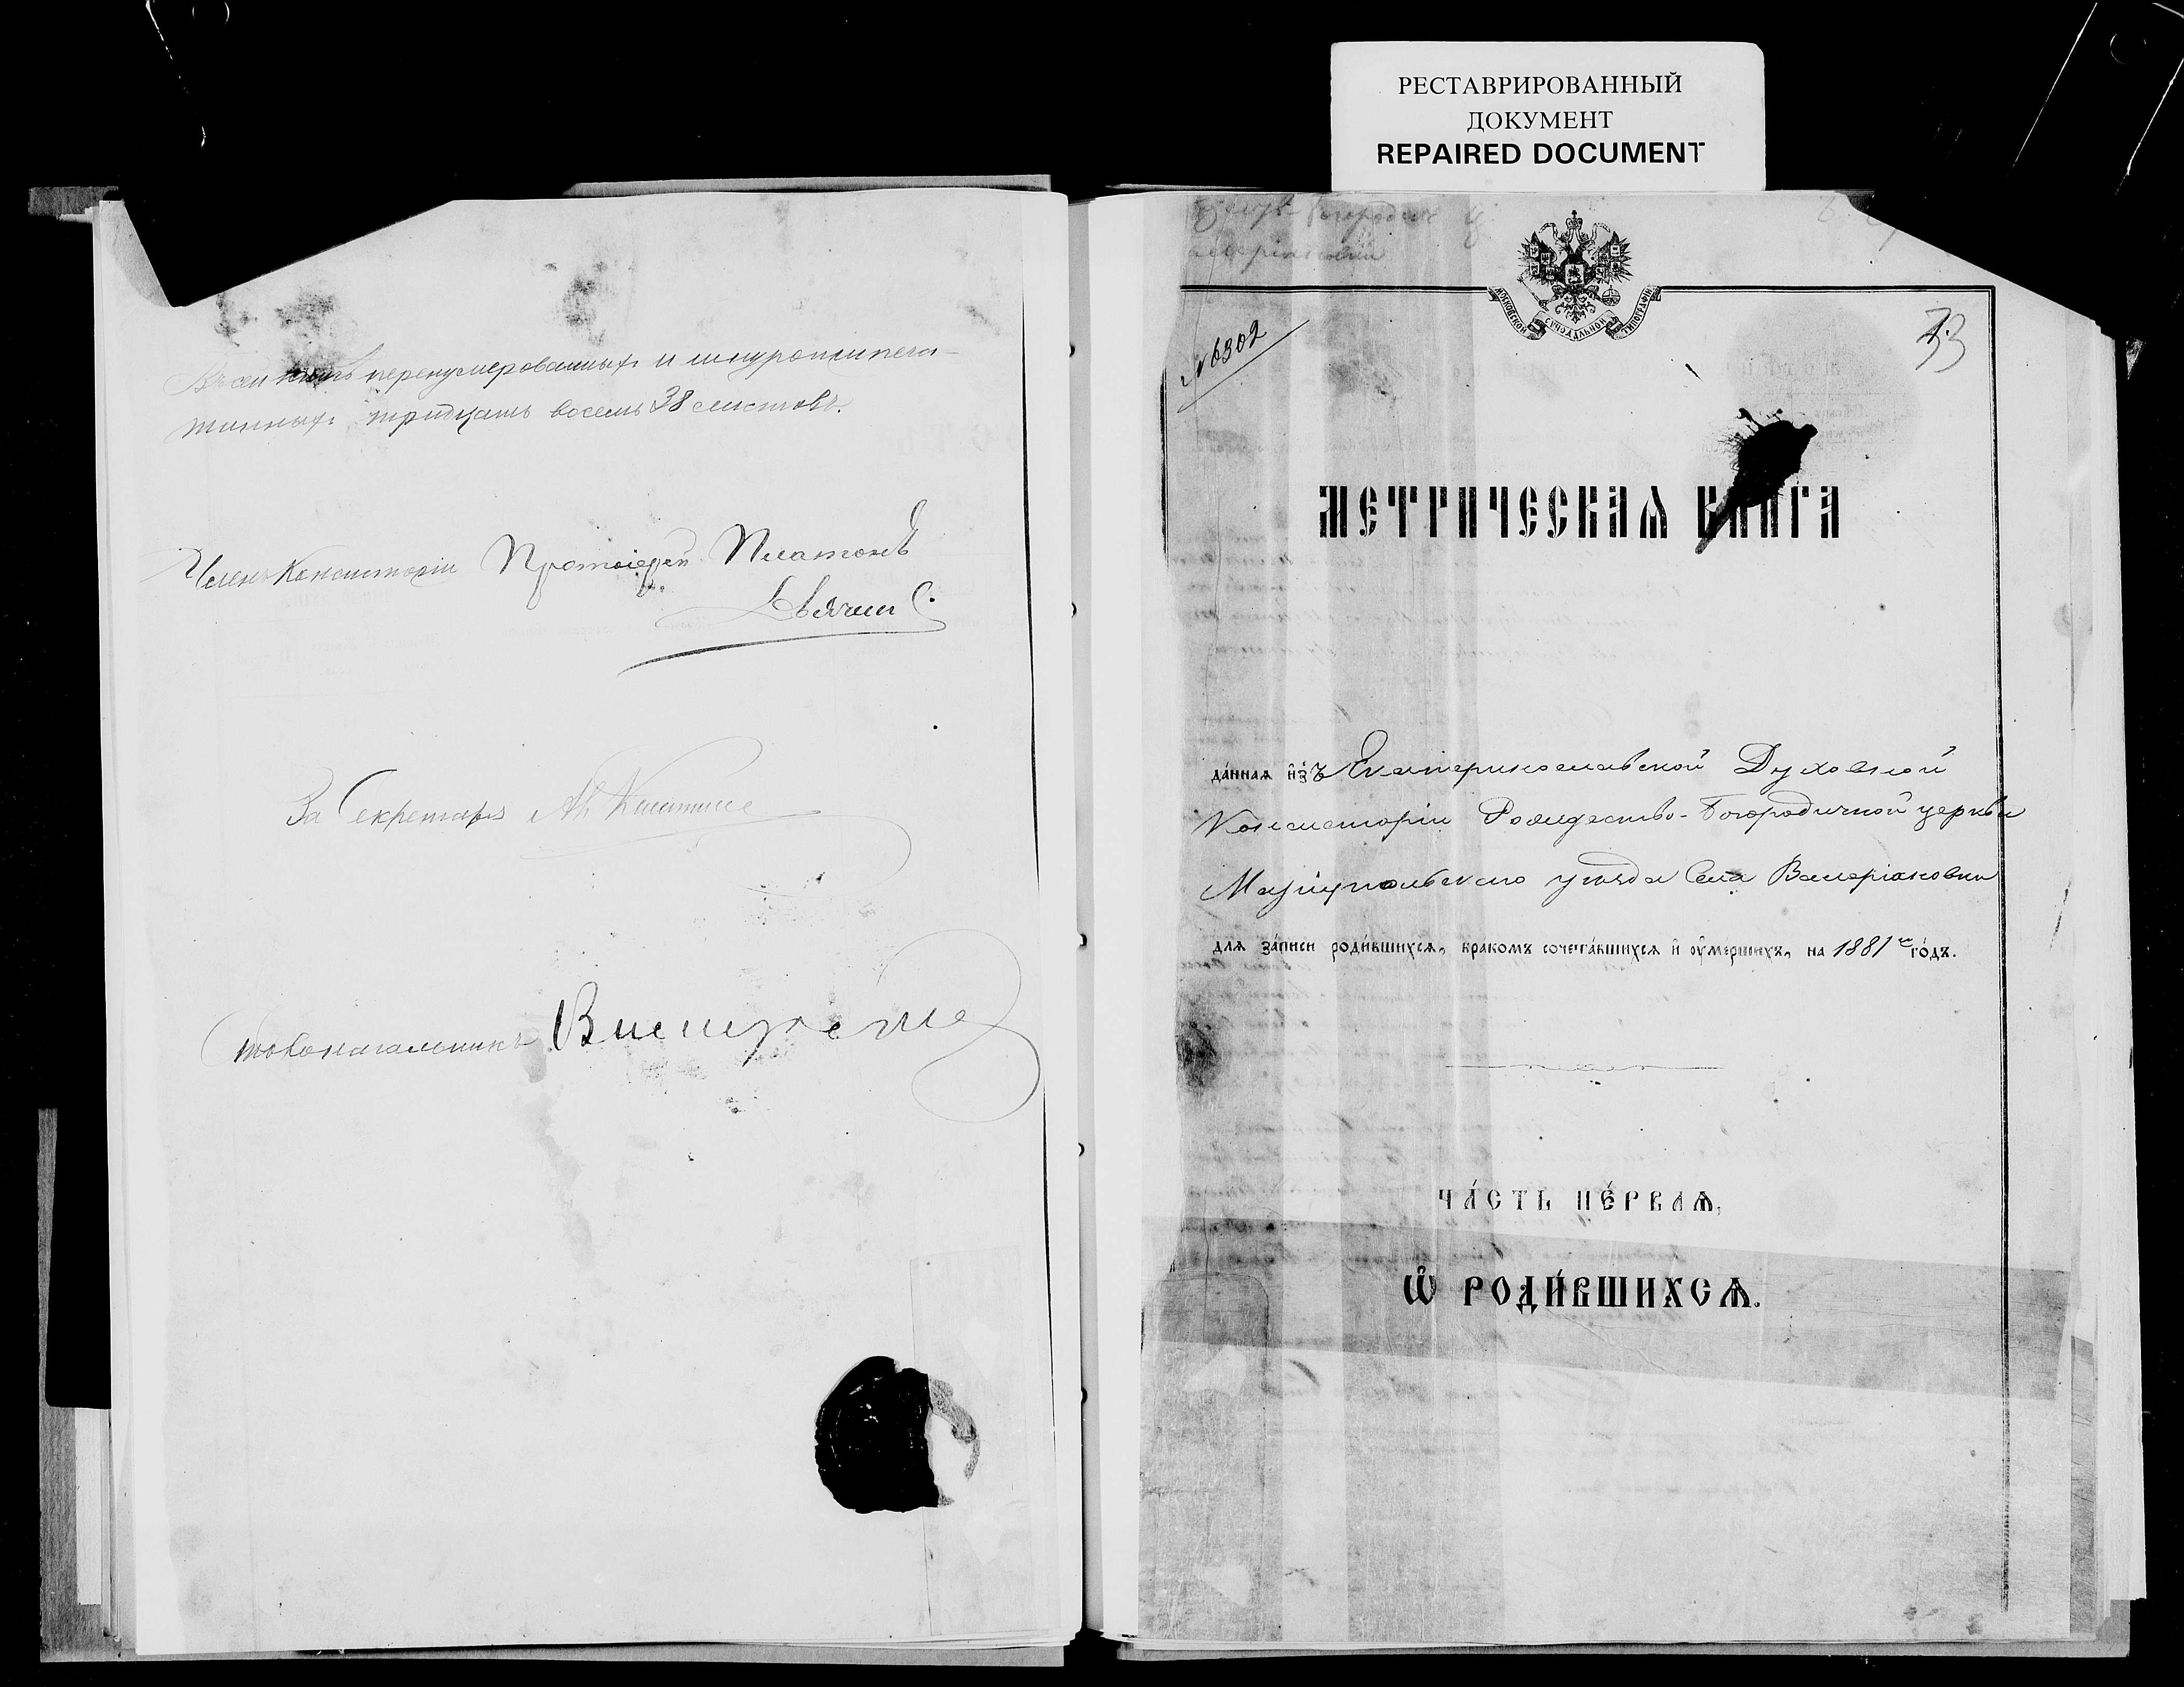 РЕСТАВРИРОВАННЫЙ
ДОКУМЕНТ
REPAIRED DOCUMENT
Въ сей книгѣ перенумерованныхъ и шнуроприпеча-
танныхъ тридцать восемь 38 листовъ.
Членъ Консисторіи Протоіерей Платонъ
За Секретаря
Столоначальникъ
Рожд Богородич ц
Валеріановки
МОСКОВСКОЙ СѴНОДАЛЬНОЙ ТИПОГРАФІИ
№ 6302
33
МЕТРИЧЕСКАѦ КНИГА
да́ннаѧ и҆з̾ Екатеринославской Духовной
Консисторіи Рождество-Богородичной церкви
Маріупольскаго уѣзда Села Валеріановки
для за́писи роди́вшихсѧ, бракомъ сочета́вшихсѧ и҆ ᲂу҆ме́ршихъ, на 1881й го́дъ.
ЧА́СТЬ ПЕ́РВАѦ,
Ѽ РОДИ́ВШИХСѦ.